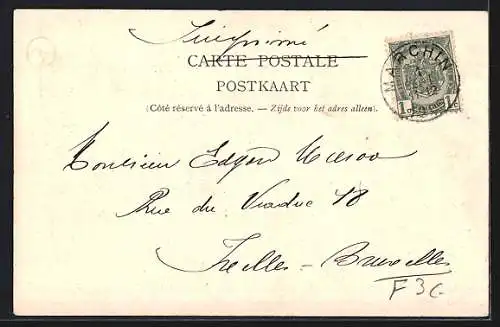 Imprimé
CARTE POSTALE
POSTKAART
(Côté réservé à l'adresse. — Zijde voor het adres alleen).
MARCHIN
1 1
Monsieur Edgard
Rue du Viaduc 48
Ixelles - Bruxelles
F3G